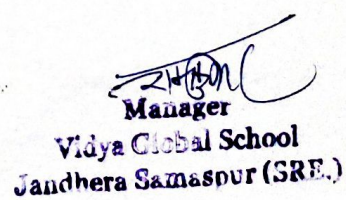 Manager
Vidya Global School
Jandhera Samaspur (SRE.)